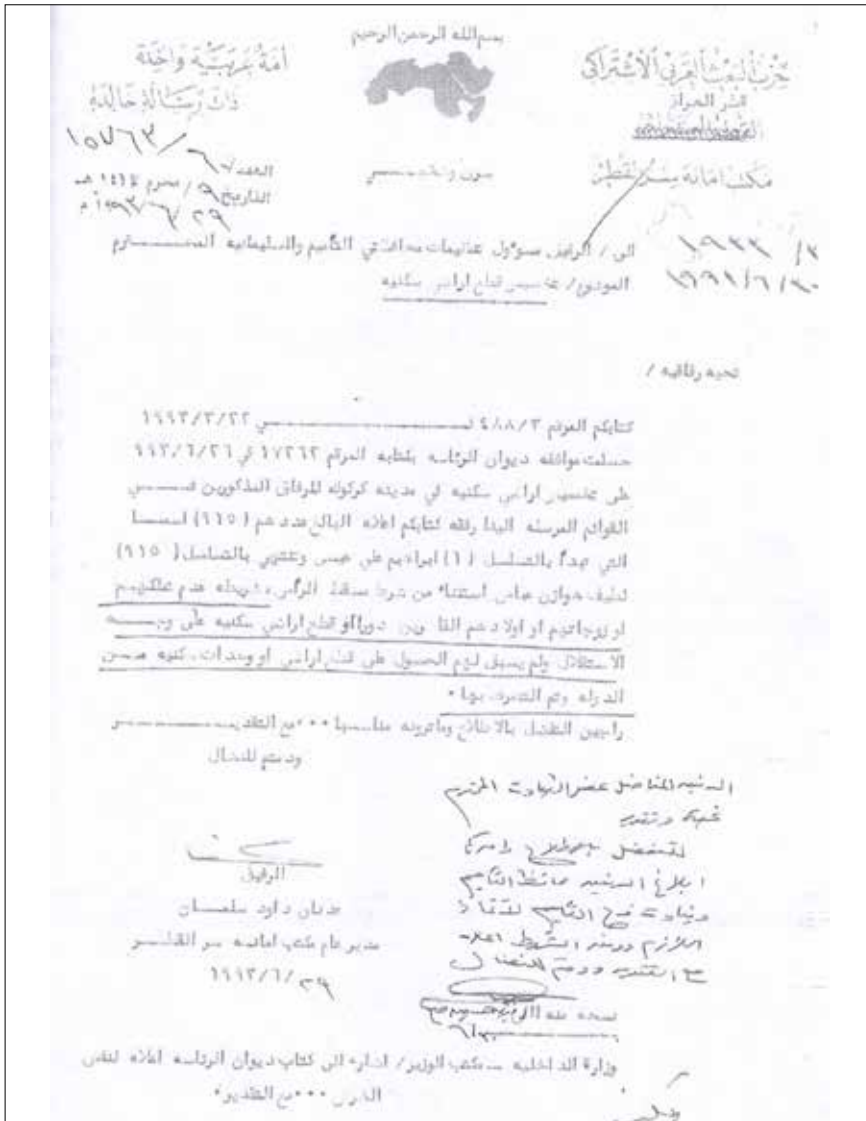 بسم الله الرحمن الرحيم
حزب البعث العربي الاشتراكي
القطر العراقي
مكتب امانة سر القطر
أمة عربية واحدة
ذات رسالة خالدة
العدد / ٦ / ١٥٧٦٣
التاريخ ٩ / محرم ١٤١٤ هـ
٢٩ / ٦ / ١٩٩٣ م
الى / الرفيق مسؤول تنظيمات محافظتي التأميم والسليمانيه المحترم
الموضوع / تخصيص قطع اراضي سكنيه
تحيه رفاقيه /
كتابكم المرقم ٤٨٨/٣ في ١٩٩٣/٣/٢٢
حصلت موافقه ديوان الرئاسه بكتابه المرقم ١٧٢٦٢ في ٩٩٣/٦/٢٦
على تخصيص اراضي سكنيه في مدينه كركوك للرفاق المذكورين في
القوائم المرسله الينا رفقه كتابكم اعلاه البالغ عددهم (٩١٥) اسما
التي تبدأ بالتسلسل (١) ابراهيم علي عيسى وتنتهي بالتسلسل (٩١٥)
لطيف عباس استثناء من شرط مسقط الرأس شريطه عدم تملكهم
او زوجاتهم او اولادهم القاصرين دورا او قطع اراضي سكنيه على وجه
الاستقلال ولم يسبق لهم الحصول على قطع اراضي او وحدات سكنيه من
الدوله وتم التصرف بها .
راجين التفضل بالاطلاع وماترونه مناسبا ... مع التقدير
ودمتم للنضال
الرفيق
عدنان داود سلمان
مدير عام مكتب امانه سر القطر
١٩٩٣/٦/٢٩
تحية وتقدير
للتفضل بالاطلاع
مع التقدير ودمتم للنضال
وزارة الداخليه – مكتب الوزير / اشاره الى كتاب ديوان الرئاسه اعلاه لنفس
الغرض ... مع التقدير .